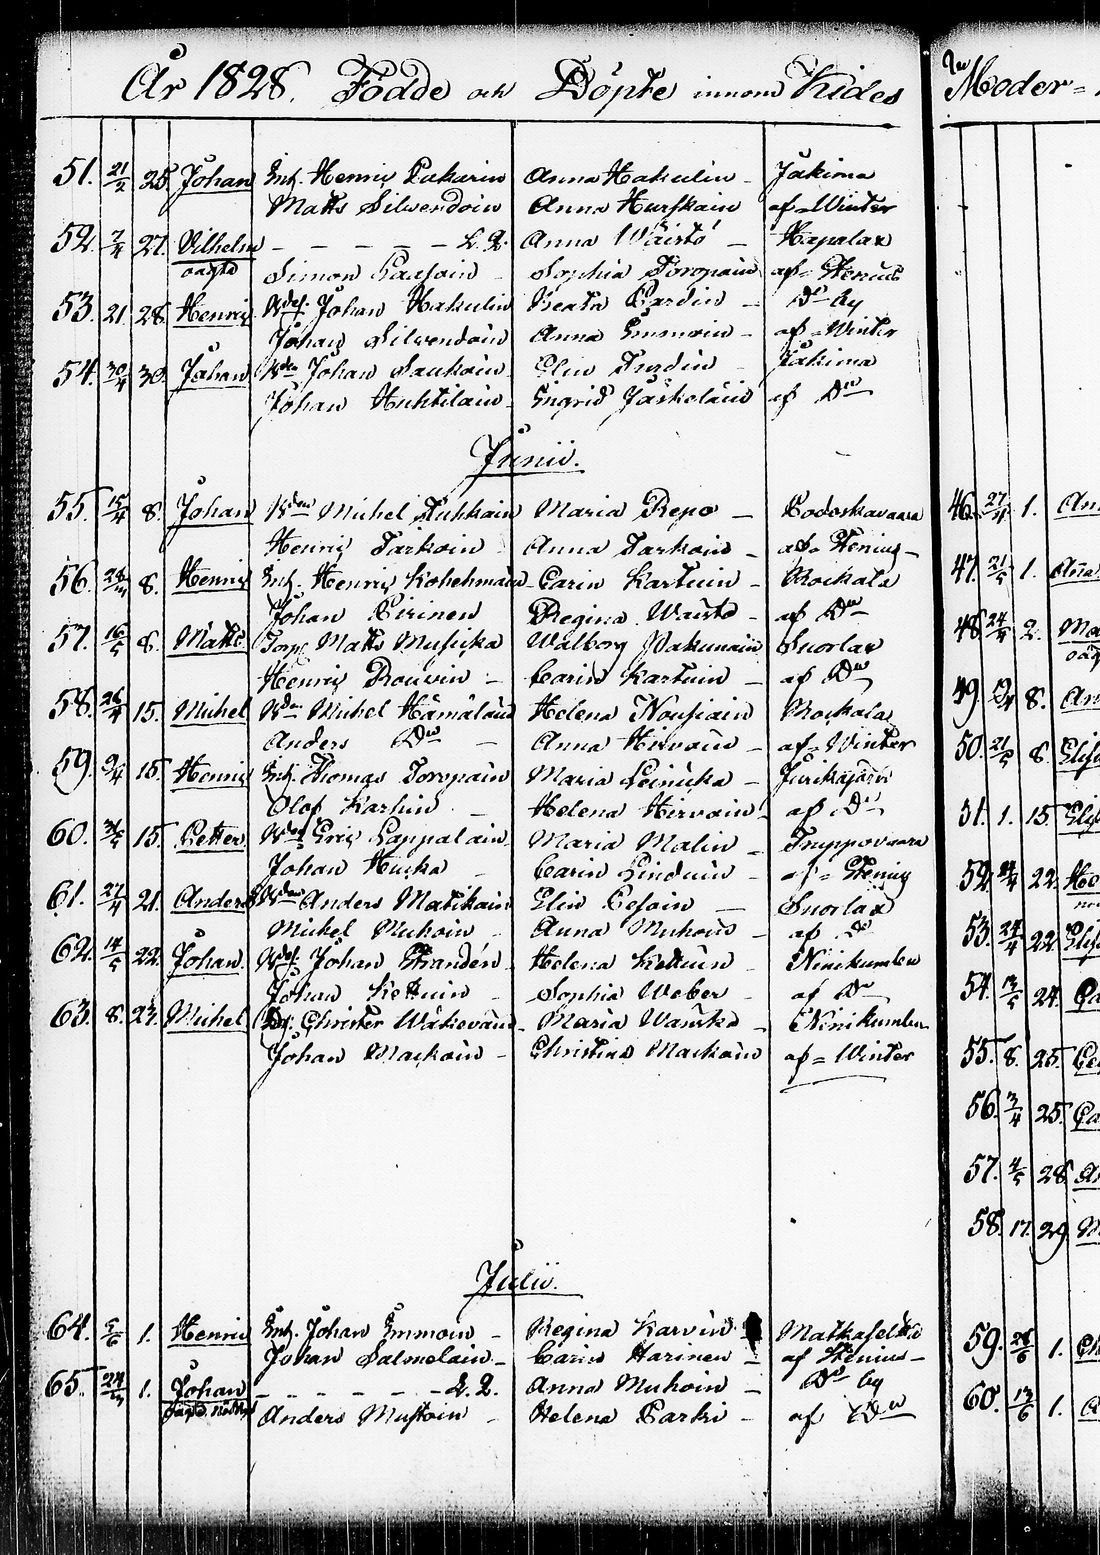 År 1828. Födde och Döpte innom Kides
51. 21/2 25. Johan Inh. Henric Pakarin Anna Hakulin - Jakima
Matts Silvendoin Anna Hurskain af Winter
52. 7/4 27. Vilhelm - - - - - L. 2. Anna Wäistö - Hapalax
oägta Simon Paasoin - Sophia Toropain af Stenius
53. 21 28. Henric Johan Hakulin Beata Pardin - Do by
Johan Silvendoin Anna Immoin - af Winter
54. 30/4 30. Johan Johan Saukoin Elin Turdin - Jakima
Johan Huhtilain Ingrid Jäskeläin af Do
Junii.
55. 15/4 8. Johan Michel Tukkain Maria Repo - Podoskavaara
Henric Tarkoin Anna Tarkoin - af Stenius -
56. 8. Henric Inh. Henric Kohehmain Carin Kartuin - Rockala
Johan Pirinen Regina Waistö - af Do
57. 16/5 8. Matts Torp. Matts Musicka Walborg Vakunain Suorlax
Henric Rouvin - Carin Kartuin - af Do
58. 26/4 15. Michel Michel Hämäläin Helena Nousiain Rockala
Anders Do - Anna Hirvoin - af Winter
59. 15. Henric Inh. Thomas Toropain Maria Leinicka - Jurikajärvi
Olof Karhin Helena Hirvoin - af Do
60. 15. Petter Eric Lappalain Maria Malin - Truppovaara
Johan Hucka - Carin Linduin - af Stenius
61. 27/4 21. Anders Anders Matikain Elin Pesoin - Suorlax
Michel Muhoin - Anna Muhoin - af Do
62. 14/5 22. Johan Johan Strandén Helena Kettuin - Ninikumbu
Johan Kettuin - Sophia Weber - af Do
63. 8. 23. Michel Christer Wäkeväin - Maria Wänskä - Ninikumbu
Johan Mackoin - Christina Mackoin af Winter
Julii.
64. 5/6 1. Henric Inh. Johan Immoin - Regina Karvin Matkaselkä
Johan Salmelain - Carin Harinen - af Stenius -
65. 1. Johan - - - - - L. 2. Anna Muhoin - Do by
Anders Mustoin - Helena Parki - af Do
Moder =
46. 27/4 1. An
47. 21/5 1. Ana
48. 24/4 2. Ma
49. 8. An
50. 21/5 8. Elis
51. 1. 15. Elis
52. 22. He
53. 24/4 22. Elis
54. 13/5 24. Ca
55. 8. 25.
56. 3/4 25. Ca
57. 4/5 28. An
58. 17. 29. M
59. 26/6 1. Ch
60. 13/6 1.